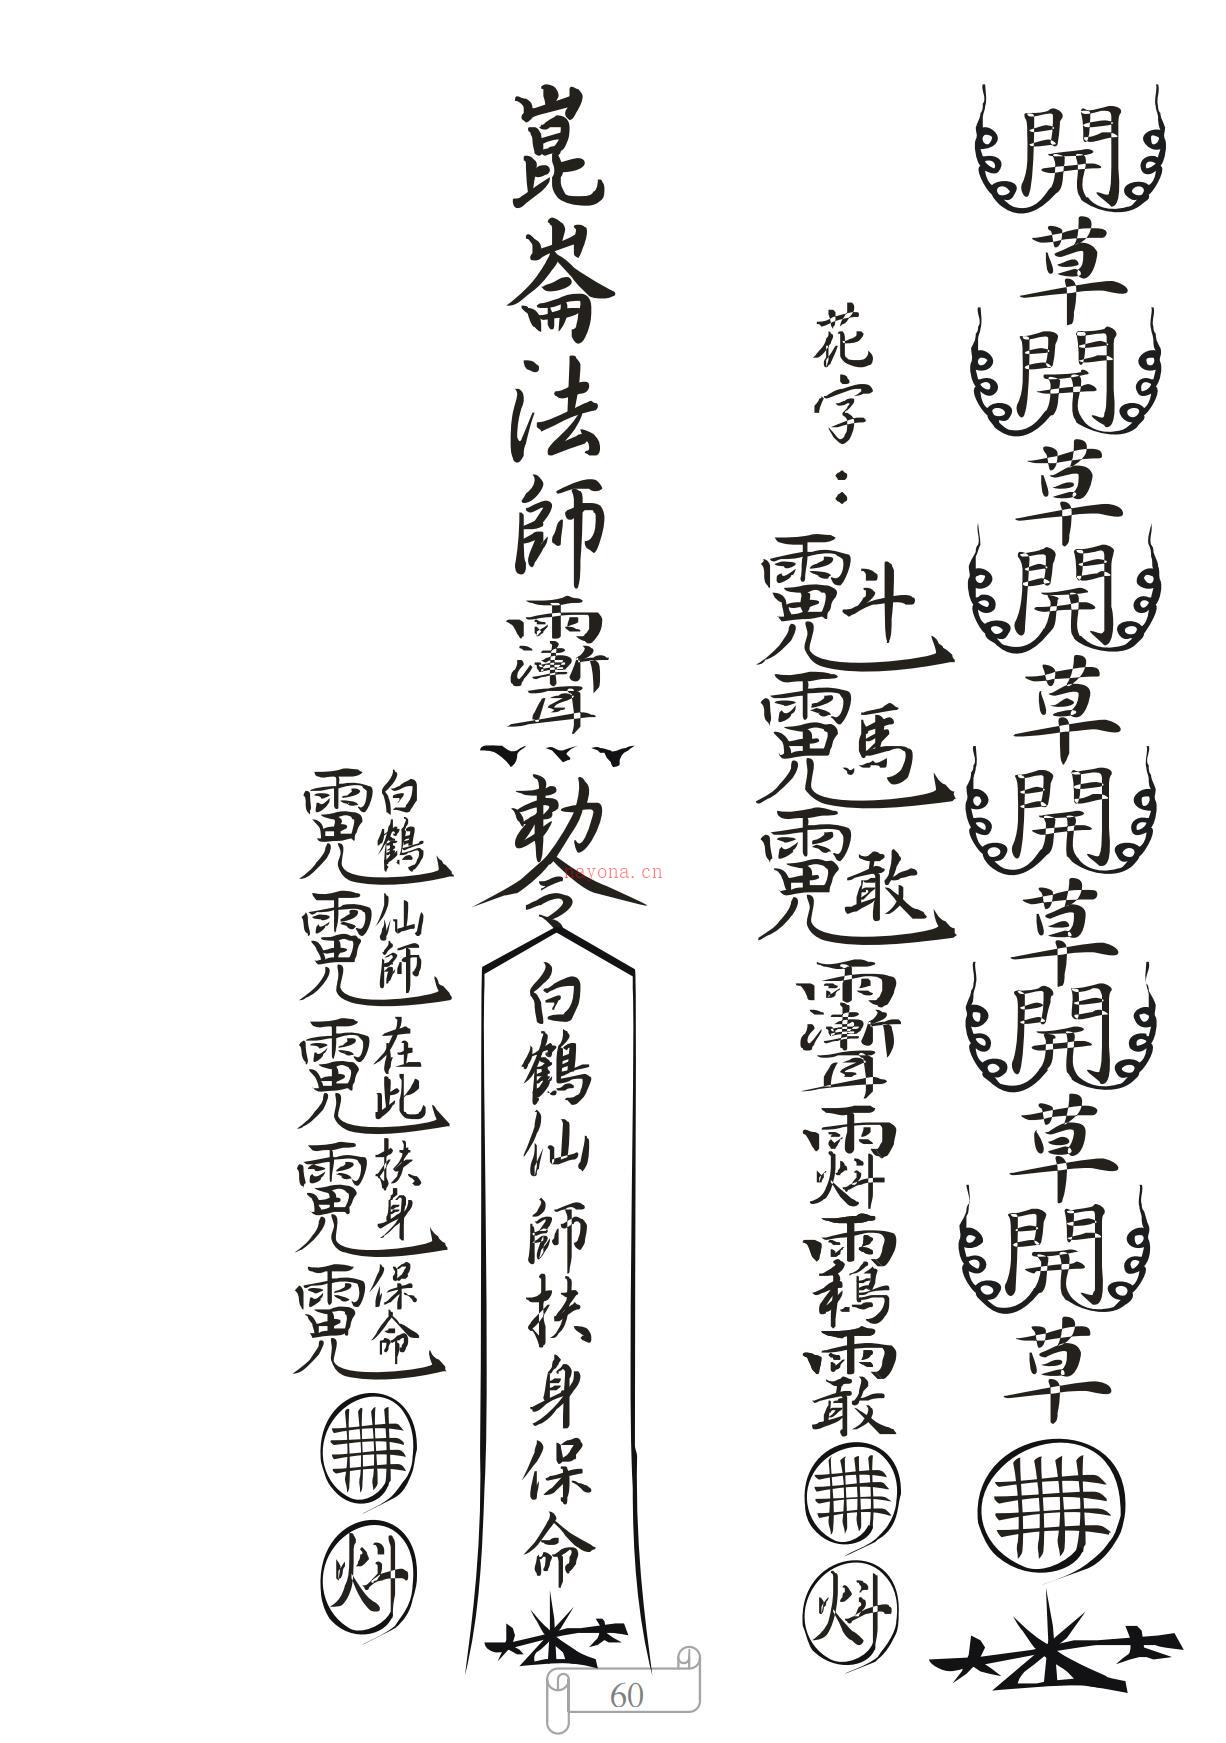 開草開草開草開草開草開草
花字：
斗
馬
敢
崑崙法師
勅令
白鶴仙師扶身保命
白鶴
仙師
在此
扶身
保命
nayona.cn
60